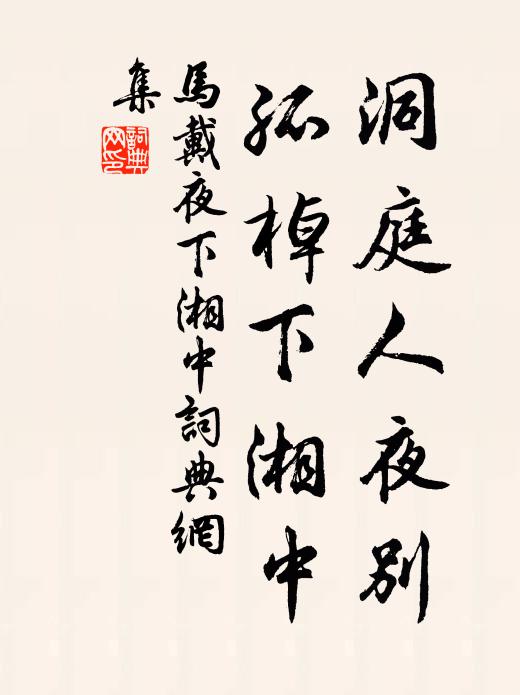 洞庭人夜別
孤棹下湘中
馬戴夜下湘中詞典網
集
詞典
网印